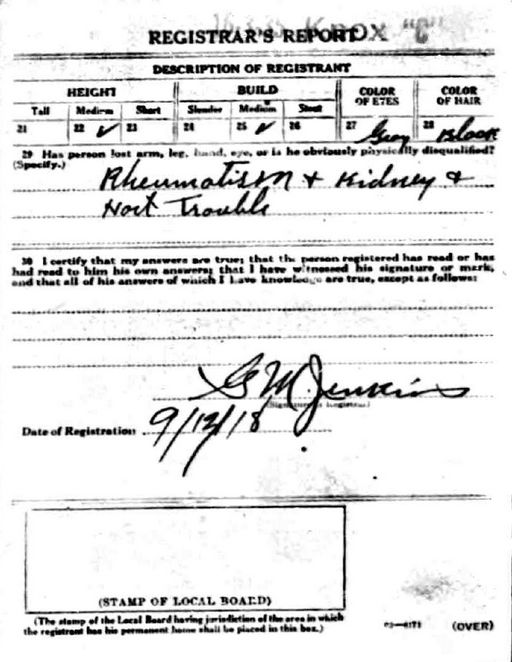 Knox "C"
REGISTRAR'S REPORT
DESCRIPTION OF REGISTRANT
HEIGHT BUILD COLOR OF EYES COLOR OF HAIR
Tall Medium Short Slender Medium Stout
21 22 ✓ 23 24 25 ✓ 26 27 Grey 28 Black
29 Has person lost arm, leg, hand, eye, or is he obviously physically disqualified?
(Specify.)
Rheumatism + Kidney +
Hort Trouble
30 I certify that my answers are true; that the person registered has read or has
had read to him his own answers; that I have witnessed his signature or mark,
and that all of his answers of which I have knowledge are true, except as follows:
G M Jenkins
(Signature of Registrar)
Date of Registration 9/12/18
(STAMP OF LOCAL BOARD)
(The stamp of the Local Board having jurisdiction of the area in which
the registrant has his permanent home shall be placed in this box.)
03—6171 (OVER)